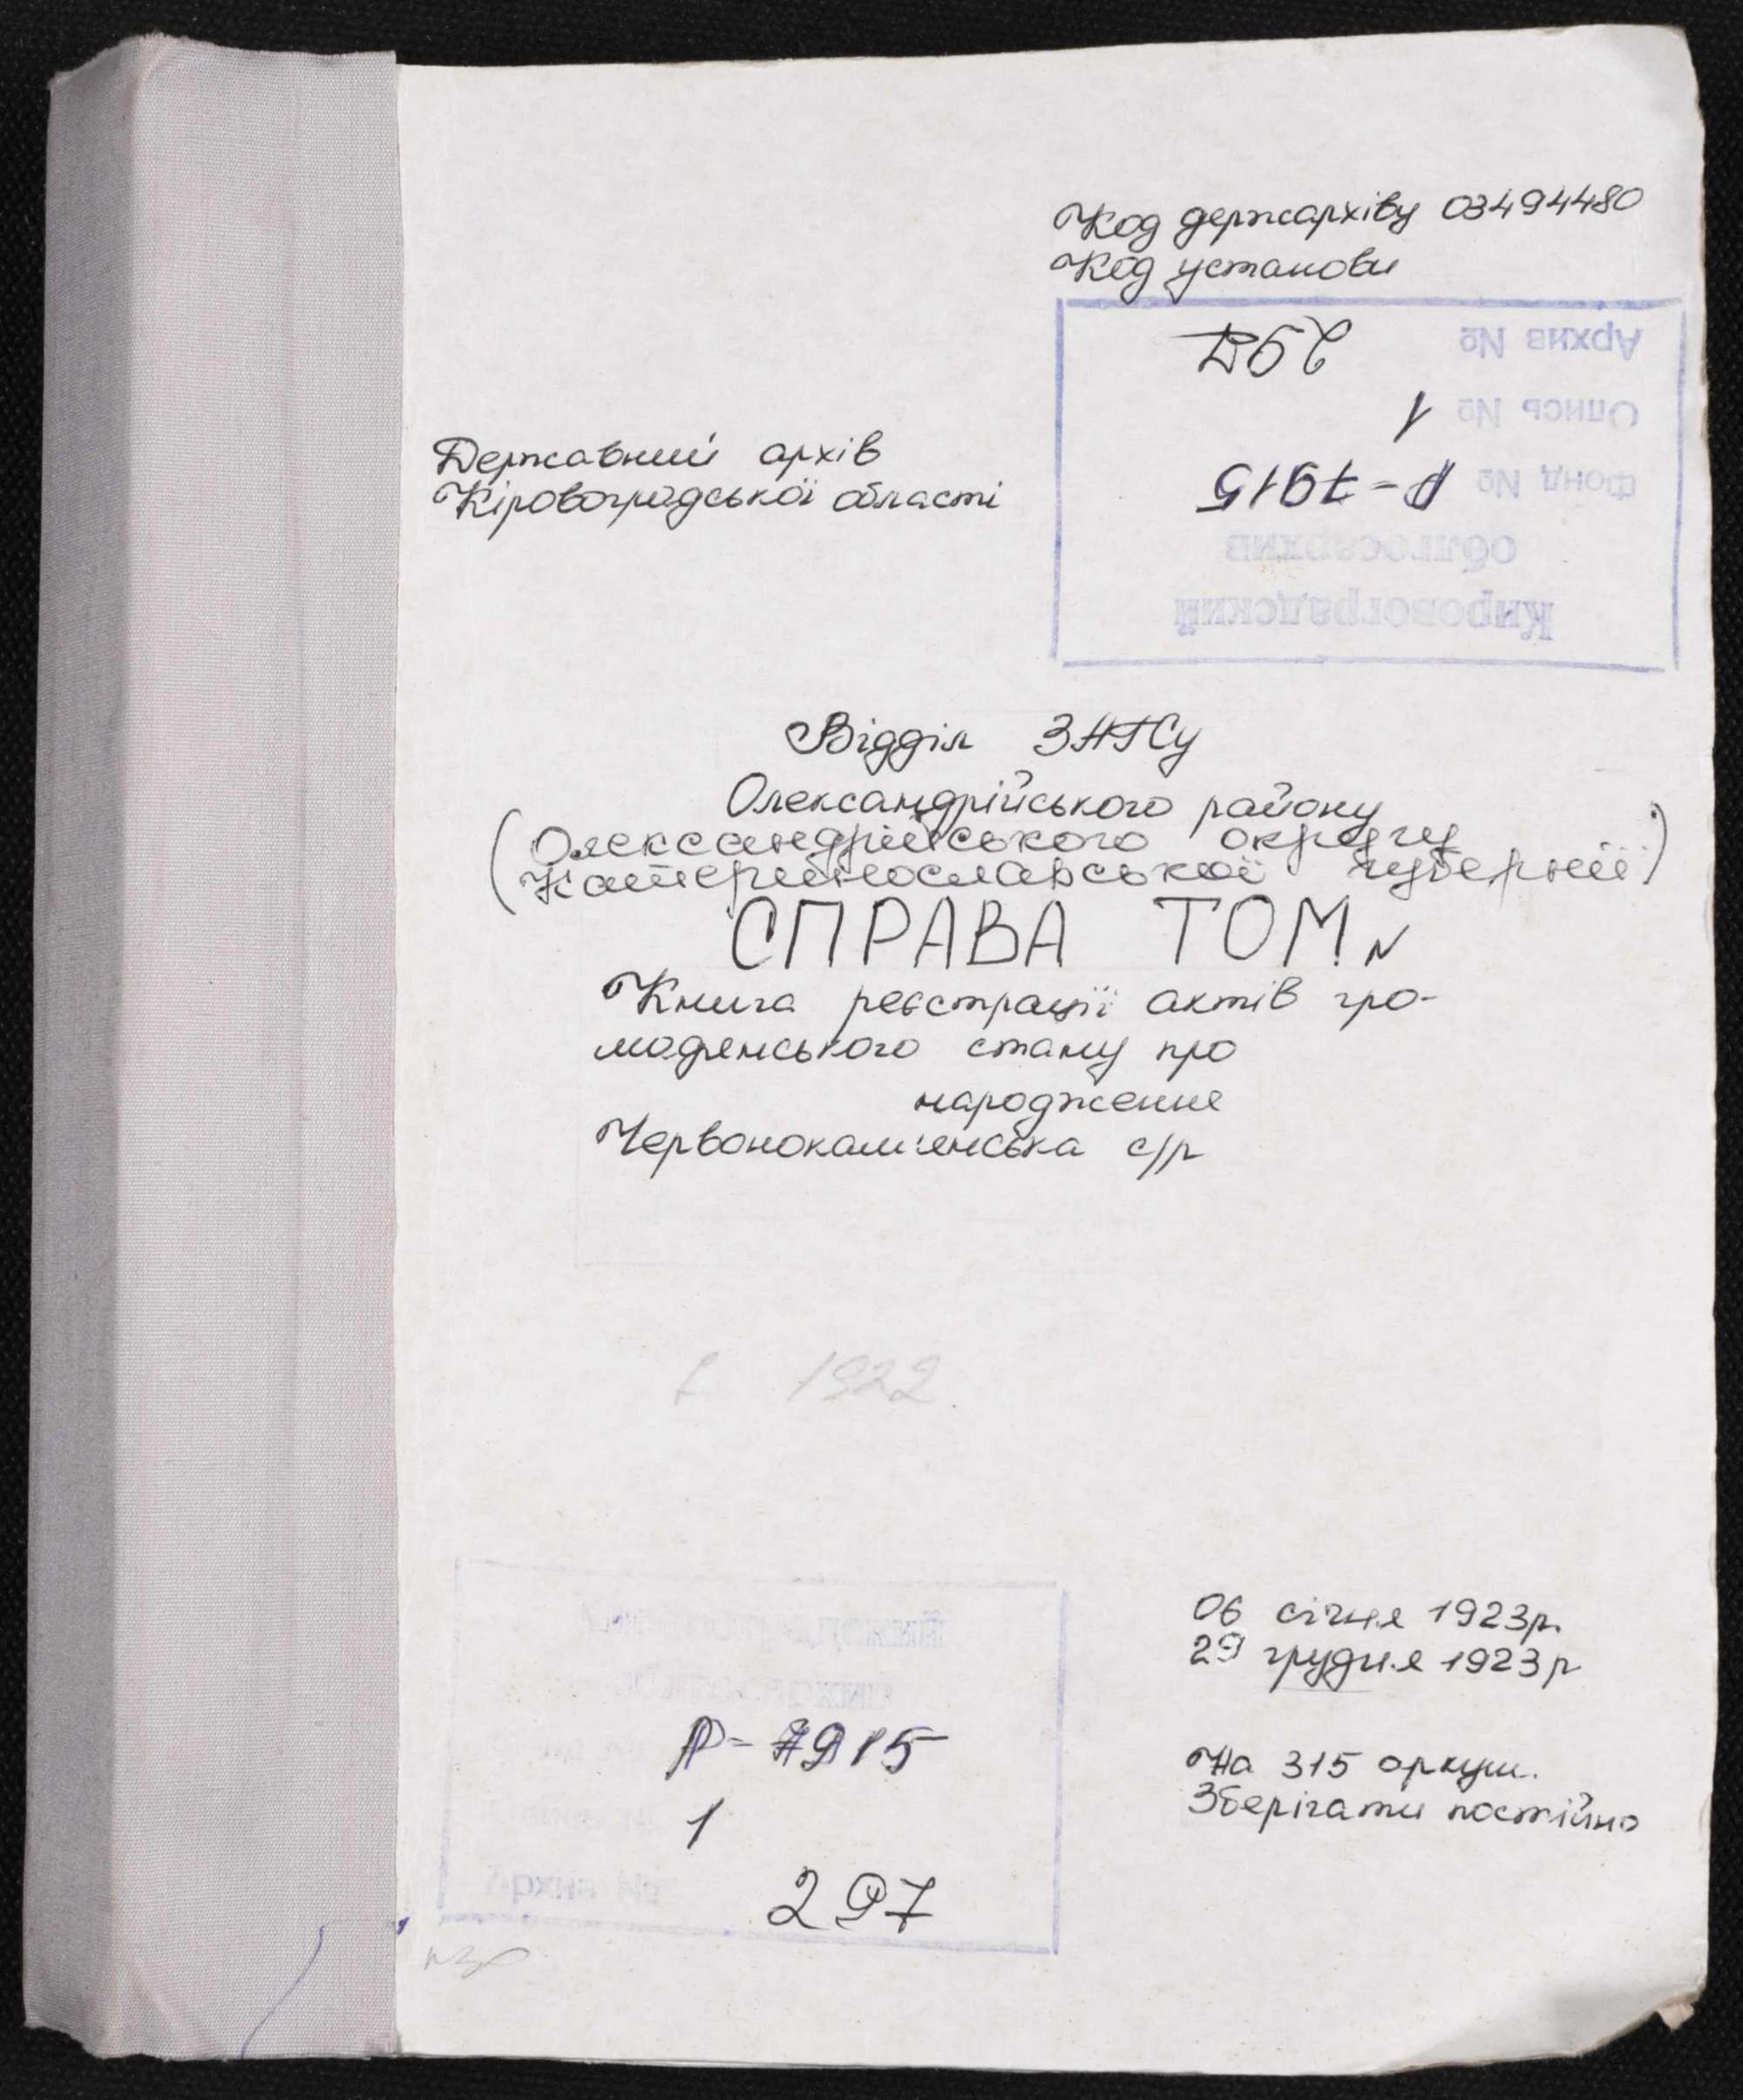 Код держархіву 03494480
Код установи
Кировоградский
облгосархив
Фонд № Р-7915
Опись № 1
Архив № 297
Державний архів
Кіровоградської області
Відділ ЗАГСу
Олександрійського району
(Олександрійського округу
Катеринославської губернії)
СПРАВА ТОМ N
Книга реєстрації актів гро-
мадянського стану про
народження
Червонокам'янська с/р
1922
06 січня 1923р.
29 грудня 1923р
На 315 аркуш.
Зберігати постійно
Р-7915
1
Архив № 297